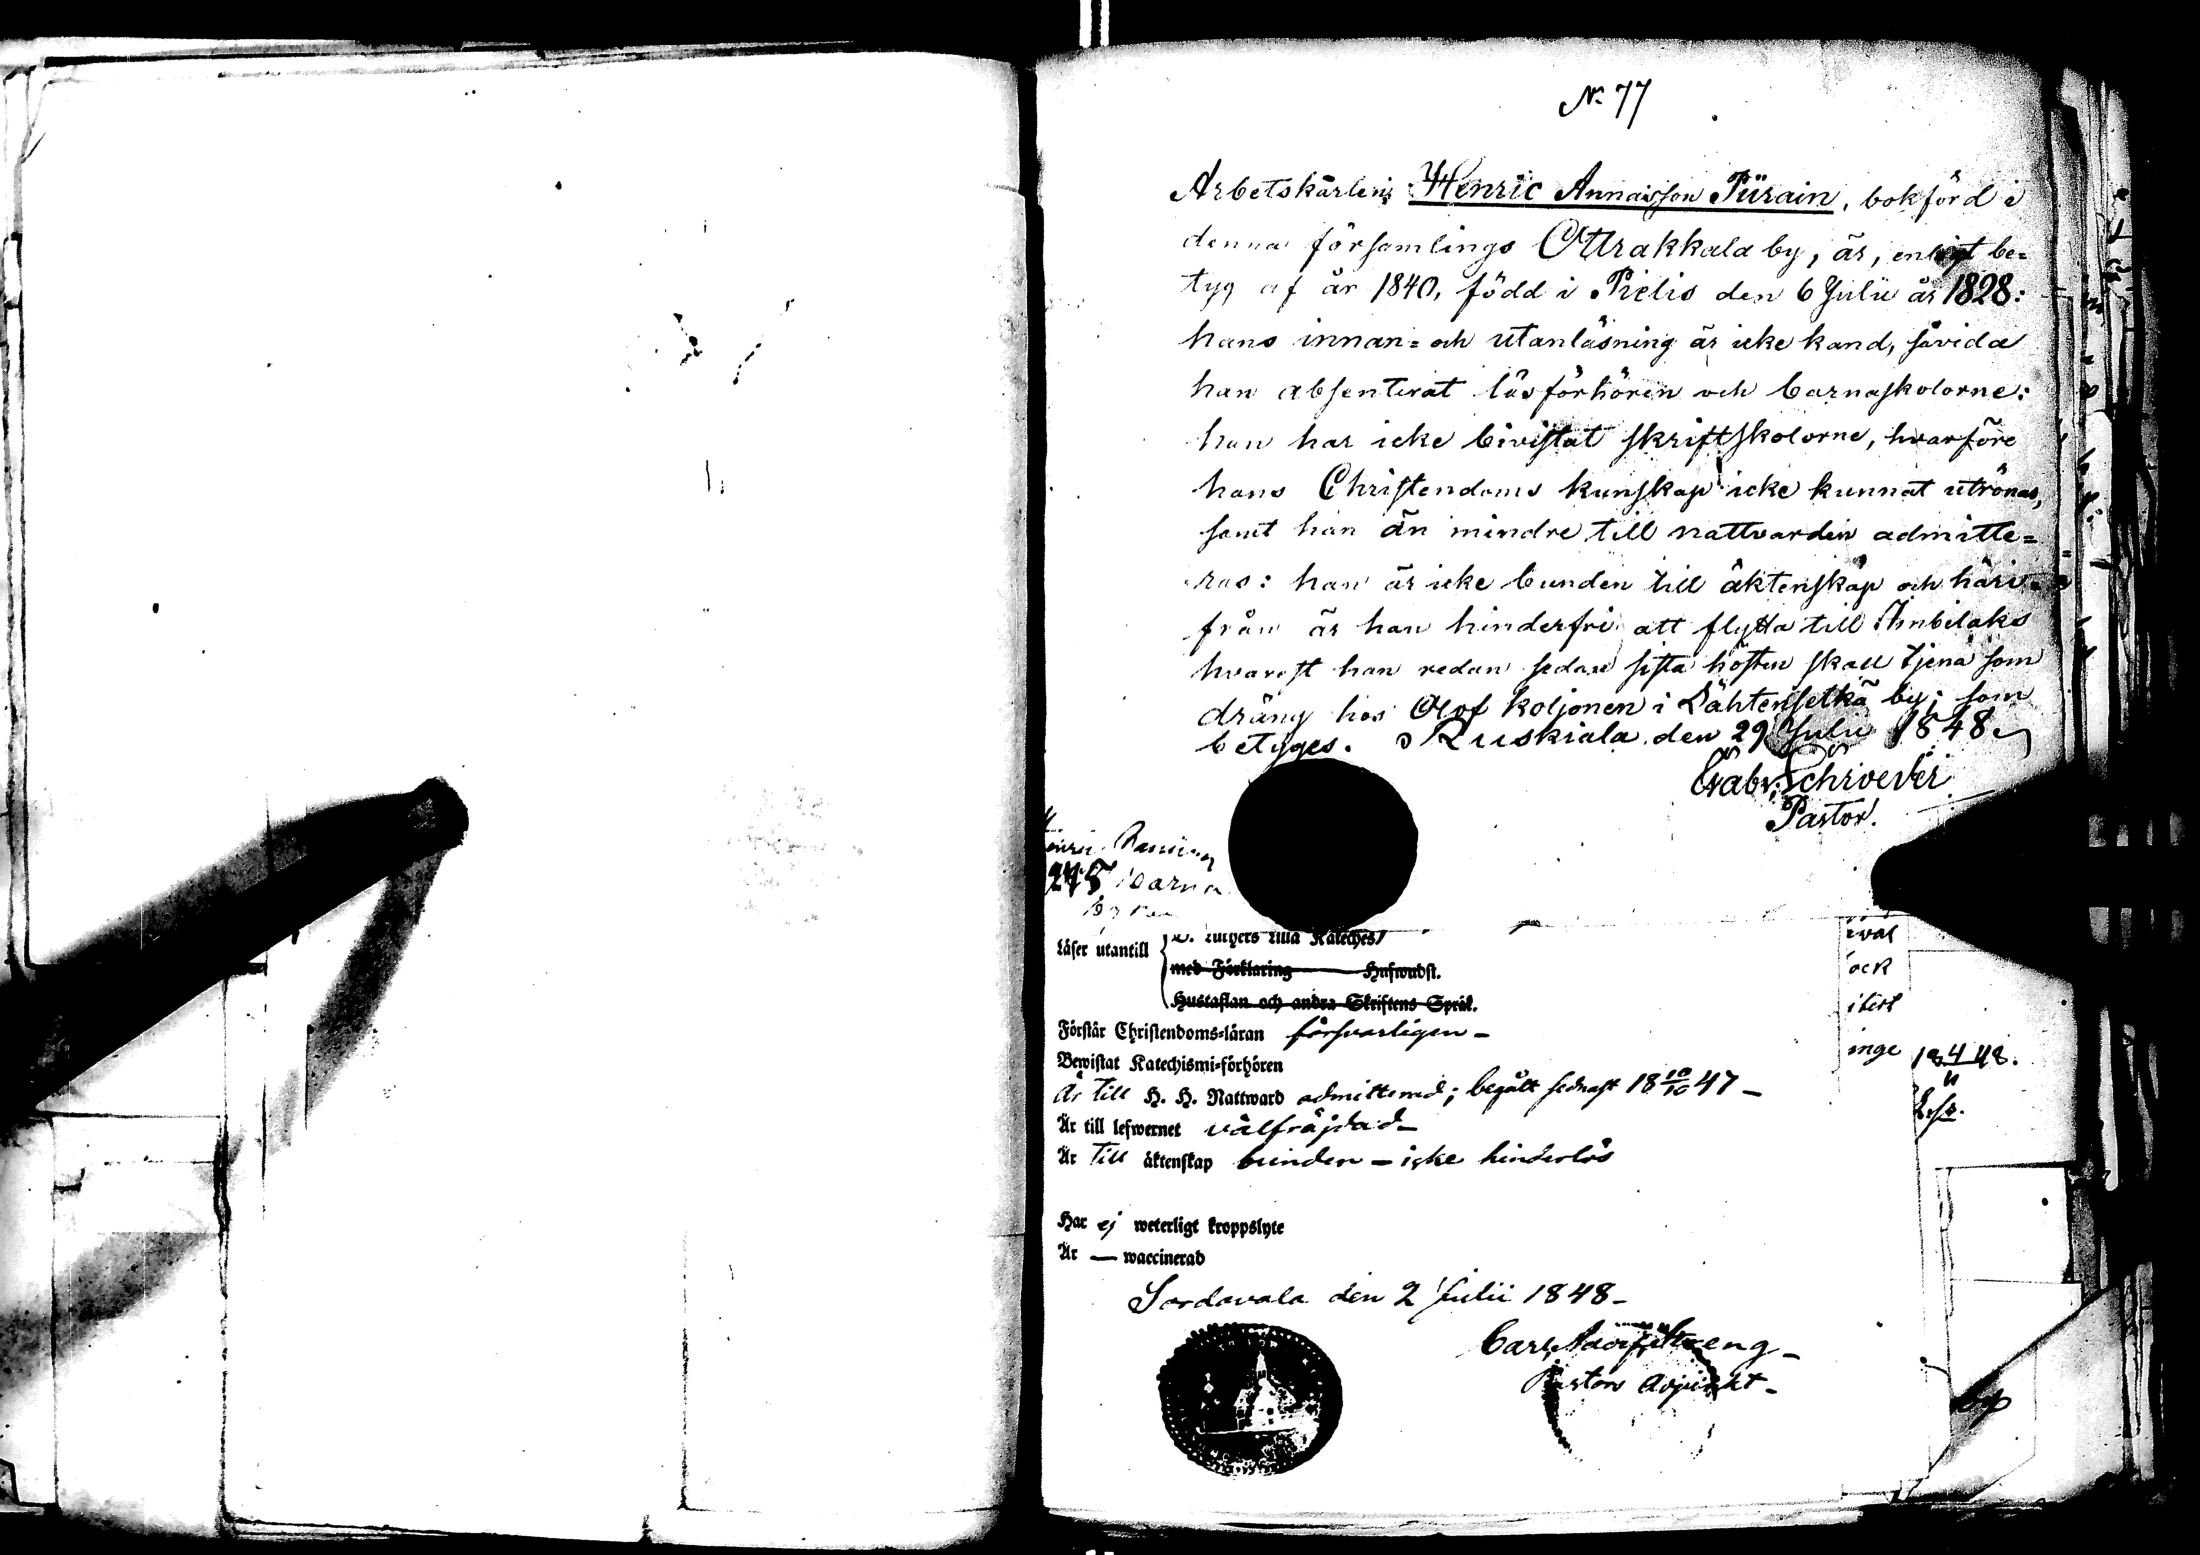 No 77
Arbetskarlen Henric Annaisson Piirain, bokförd i
denna församlings Ottrakkala by, är, enligt be=
tyg af år 1840, född i Pielis den 6 Julii år 1828:
hans innan= och utanläsning är icke känd, såvida
han absenterat läsförhören och barnaskolorne:
han har icke bivistat skriftskolorne, hvarföre
hans Christendoms kunskap icke kunnat utrönas,
samt han än mindre till nattvarden admitte=
ras: han är icke bunden till äktenskap och häri=
från är han hinderfri att flytta till Imbilaks
hvarest han redan sedan sista hösten skall tjena som
dräng hos Olof Koljonen i Lähtenselkä by; som
betyges. Ruskiala den 29 Julii 1848
Gabr. Schroeder
Pastor.
245 Barna
D. Luthers Lilla Kateches
Läser utantill
med Förklaring Huswudst.
Hustaflan och andra Skriftens Språk.
Förstår Christendoms=läran försvarligen –
Bewistat Katechismi=förhören
Är till H. H. Nattward admitterad; begått sednast 18 10/10 47 –
Är till lefwernet välfräjdad –
Är till äktenskap bunden – icke hinderlös
Har ej weterligt kroppslyte
Är — waccinerad
Sordavala den 2 Julii 1848 –
Carl Adolf Streng –
Pastors Adjunkt –
ock
inge